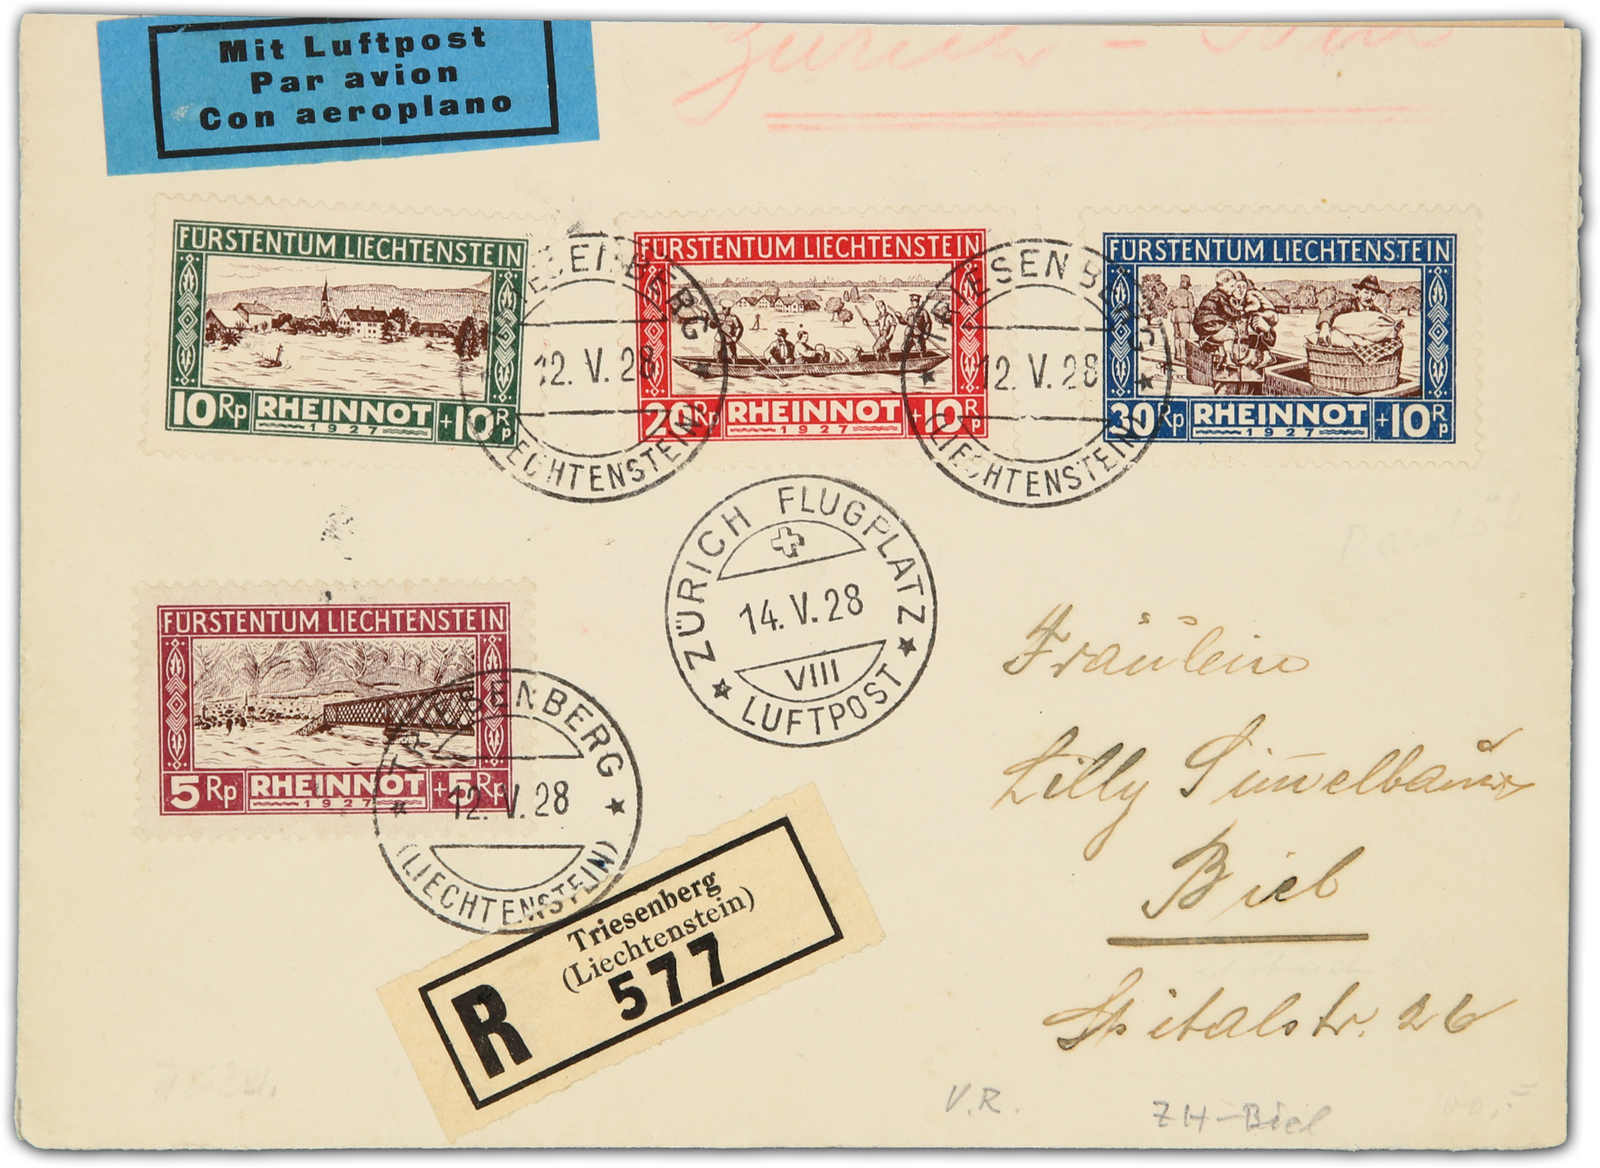 Mit Luftpost
Par avion
Con aeroplano
Zürich -
FÜRSTENTUM LIECHTENSTEIN
10 Rp RHEINNOT +10 Rp
1927
FÜRSTENTUM LIECHTENSTEIN
20 Rp RHEINNOT +10 Rp
1927
FÜRSTENTUM LIECHTENSTEIN
30 Rp RHEINNOT +10 Rp
1927
TRIESENBERG
12.V.28
(LIECHTENSTEIN)
TRIESENBERG
12.V.28
(LIECHTENSTEIN)
ZÜRICH FLUGPLATZ
14.V.28
VIII
LUFTPOST
FÜRSTENTUM LIECHTENSTEIN
5 Rp RHEINNOT +5 Rp
1927
TRIESENBERG
12.V.28
(LIECHTENSTEIN)
R
Triesenberg
(Liechtenstein)
577
Fräulein
Lilly
Biel
Spitalstr. 26
V.R.
ZH-Biel